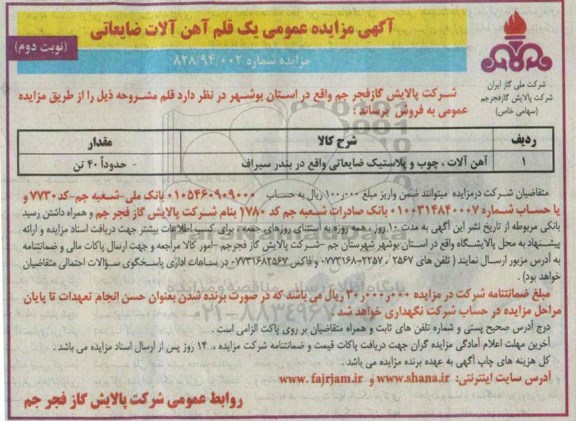 آگهی مزایده عمومی یک قلم آهن آلات ضایعاتی
(نوبت دوم)
مزایده شماره ۸۲۸/۹۴/۰۰۲
شرکت ملی گاز ایران
شرکت پالایش گازفجرجم
(سهامی خاص)
شرکت پالایش گازفجر جم واقع در استان بوشهر در نظر دارد قلم مشروحه ذیل را از طریق مزایده
عمومی به فروش برساند :
ردیف شرح کالا مقدار
۱ آهن آلات ، چوب و پلاستیک ضایعاتی واقع در بندر سیراف - حدوداً ۴۰ تن
متقاضیان شرکت درمزایده میتوانند ضمن واریز مبلغ ۱۰۰٫۰۰۰ ریال به حساب ۰۱۰۵۴۶۰۹۰۹۰۰۰ بانک ملی-شعبه جم-کد۷۷۳۰ و
یا حساب شماره ۰۱۰۰۳۱۴۸۴۰۰۰۷ بانک صادرات شعبه جم کد ۱۷۸۰ بنام شرکت پالایش گاز فجر جم و همراه داشتن رسید
بانکی مربوطه از تاریخ نشر این آگهی به مدت ۱۰ روز ، همه روزه به استثنای روزهای جمعه ، برای کسب اطلاعات بیشتر جهت دریافت اسناد مزایده و ارائه
پیشنهاد به محل پالایشگاه واقع در استان بوشهر شهرستان جم –شرکت پالایش گاز فجرجم –امور کالا مراجعه و جهت ارسال پاکات مالی و ضمانتنامه
به آدرس مزبور ارسال نمایند ( تلفن های ۲۵۶۷ ، ۲۲۵۷-۰۷۷۳۱۶۸ و فاکس ۰۷۷۳۱۶۸۲۵۶۷ در ساعات اداری پاسخگوی سؤالات احتمالی متقاضیان
خواهد بود) .
مبلغ ضمانتنامه شرکت در مزایده ۳۰٫۰۰۰٫۰۰۰ ریال می باشد که در صورت برنده شدن بعنوان حسن انجام تعهدات تا پایان
مراحل مزایده در حساب شرکت نگهداری خواهد شد .
درج آدرس صحیح پستی و شماره تلفن های ثابت و همراه متقاضیان بر روی پاکت الزامی است .
آخرین مهلت اعلام آمادگی مزایده گران جهت دریافت پاکات قیمت و ضمانتنامه شرکت مزایده ، ۱۴ روز پس از ارسال اسناد مزایده می باشد .
کل هزینه های چاپ آگهی به عهده برنده مزایده می باشد .
آدرس سایت اینترنتی: www.shana.ir و www.fajrjam.ir
روابط عمومی شرکت پالایش گاز فجر جم